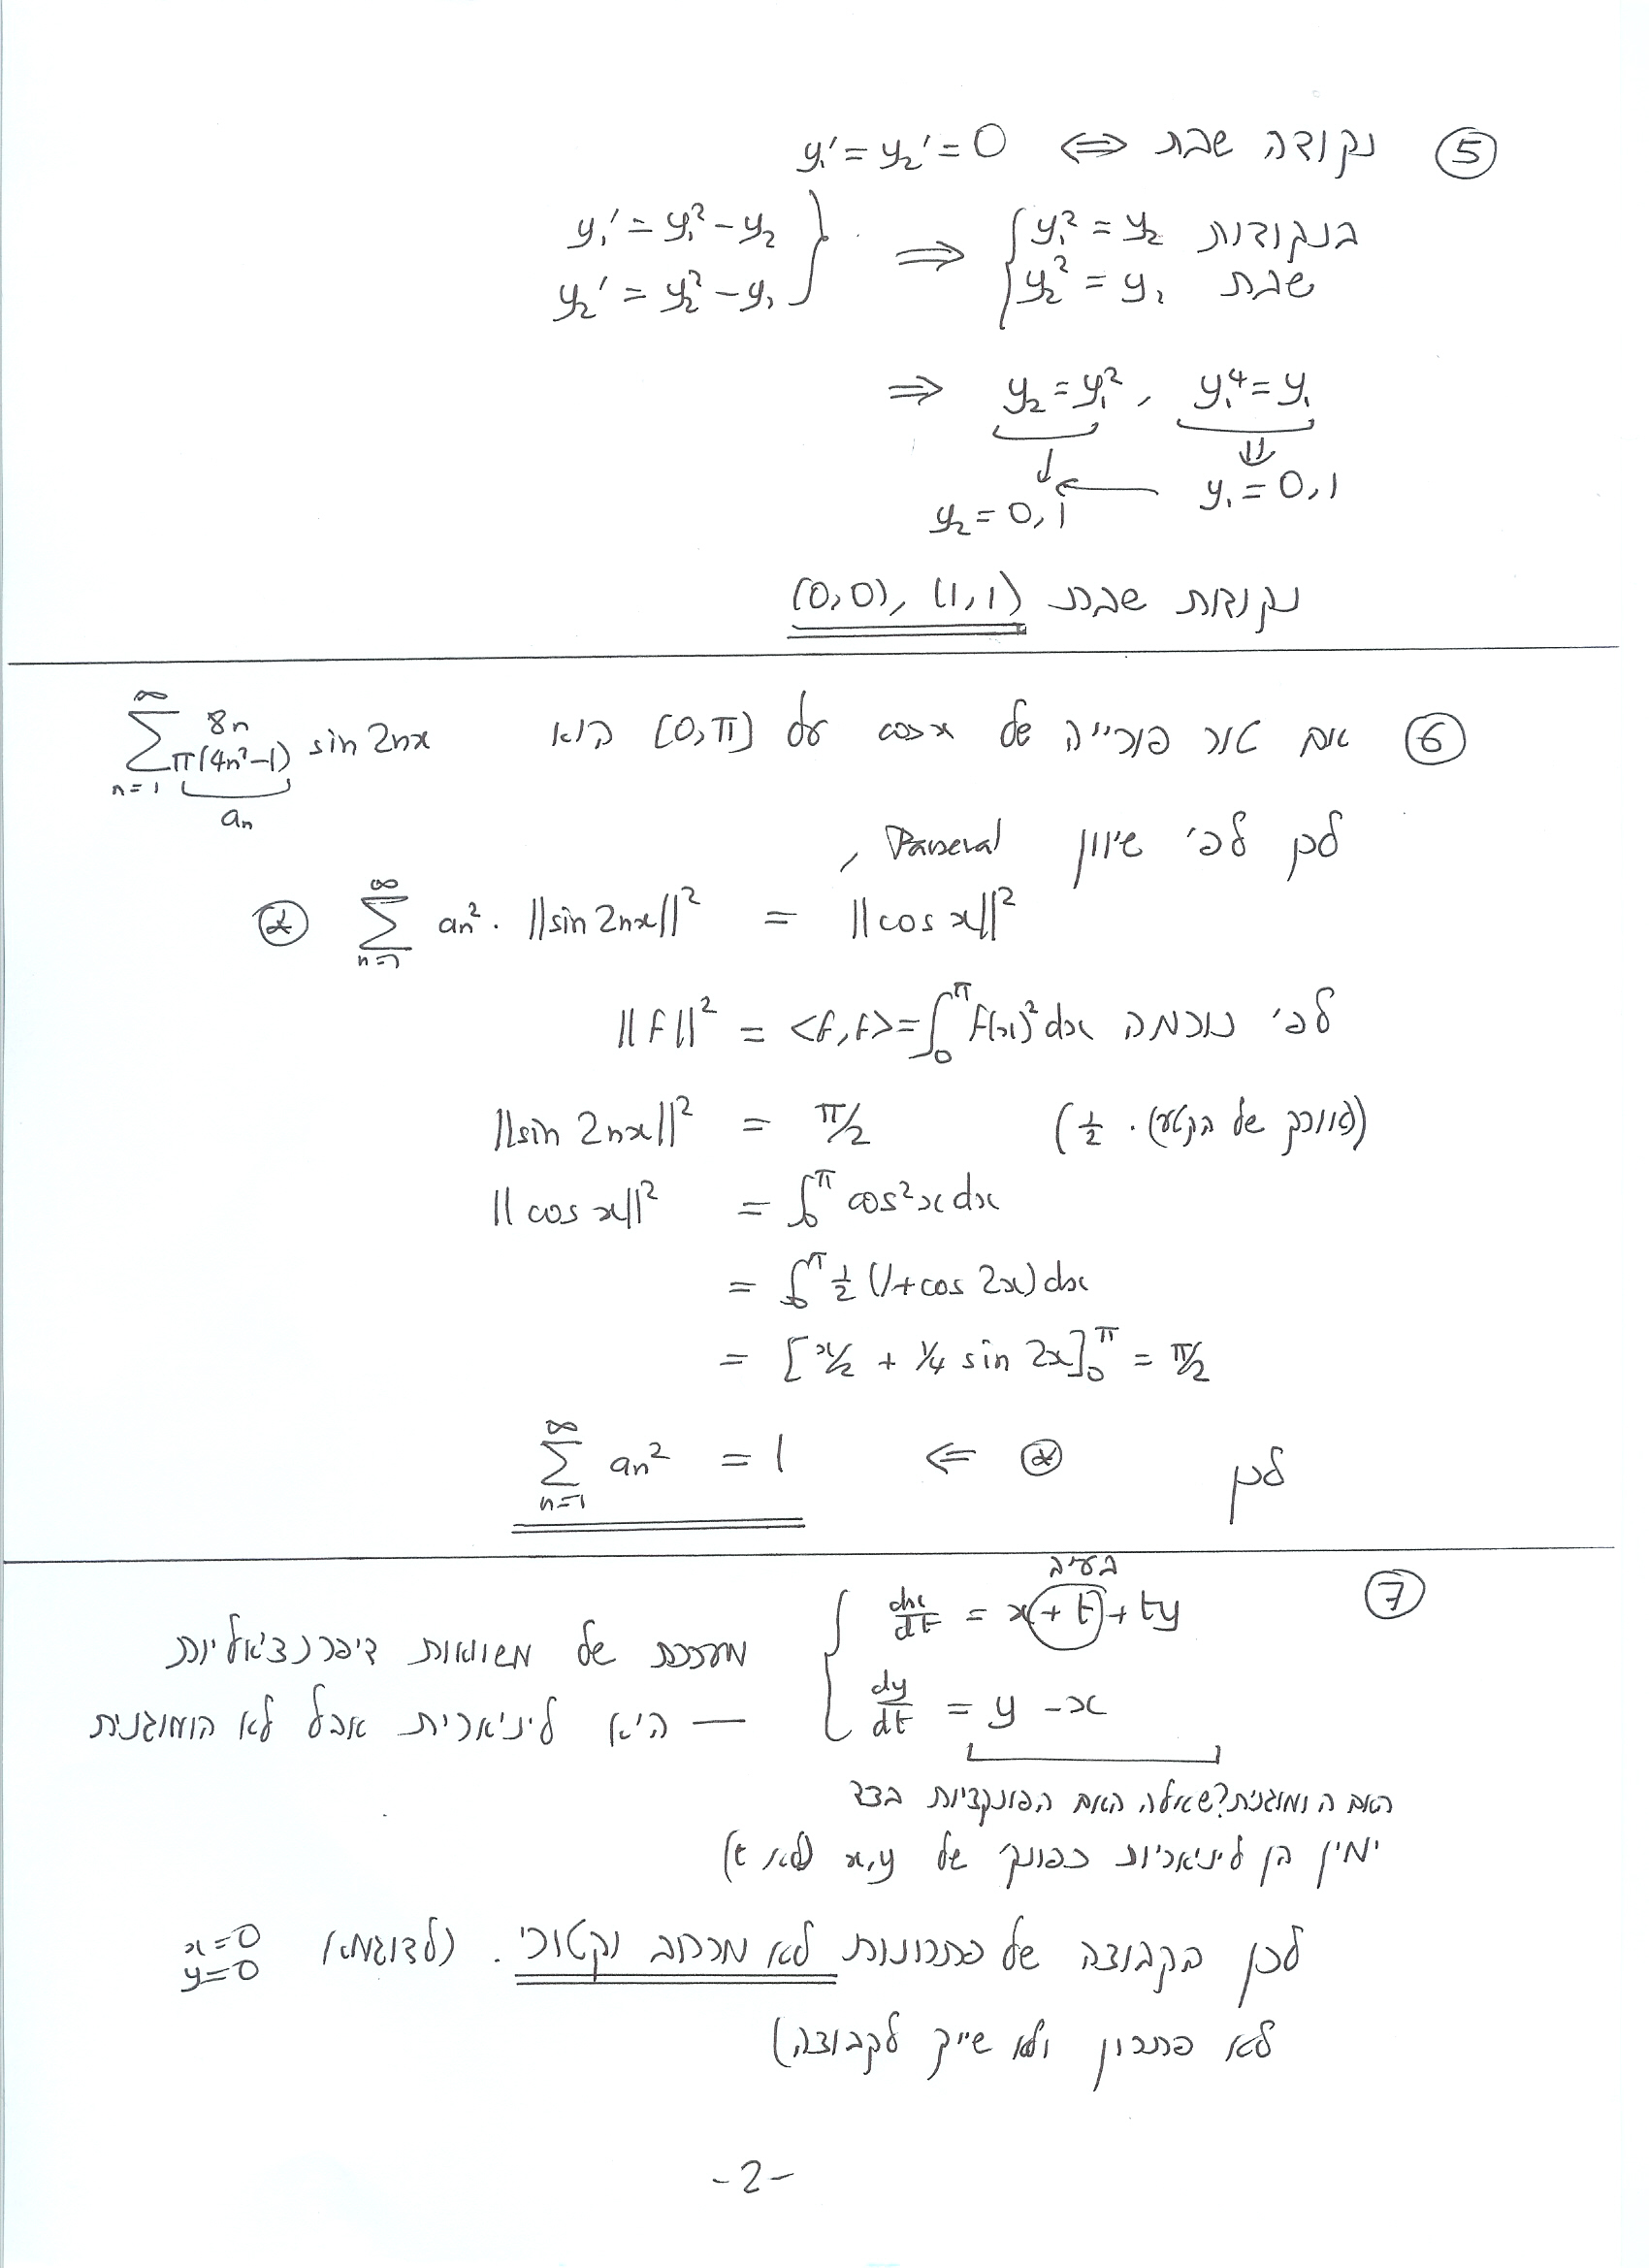 ⑤ נקודה שבת ⟺ y₁' = y₂' = 0
y₁' = y₁² - y₂ } ⟹ { y₁² = y₂ בנקודות
y₂' = y₂² - y₁ } { y₂² = y₁ שבת
⟹ y₂ = y₁² , y₁⁴ = y₁
⇓
y₁ = 0, 1
y₂ = 0, 1
נקודות שבת (0,0), (1,1)
⑥ אם טור פורייה של cos x על [0,π] הוא ∑_{n=1}^{∞} 8n/(π(4n²-1)) sin 2nx
aₙ
לכן לפי שיוון Parseval,
∑_{n=1}^{∞} aₙ² · ||sin 2nx||² = ||cos x||²
לפי נורמה ||f||² = <f,f> = ∫₀^π f(x)² dx
||sin 2nx||² = π/2 (½ · (אורך של הקטע))
||cos x||² = ∫₀^π cos²x dx
= ∫₀^π ½ (1 + cos 2x) dx
= [x/2 + ¼ sin 2x]₀^π = π/2
לכן ⇐ ∑_{n=1}^{∞} aₙ² = 1
בעיה
⑦ { dx/dt = x + t + ty מערכת של משוואות דיפרנציאליות
{ dy/dt = y - x — היא ליניארית אבל לא הומוגנית
האם הומוגנית? שאלה האם הפונקציות בצד
ימין הן ליניאריות כפונק' של x,y (לא t)
לכן הקבוצה של פתרונות לא מרחב וקטורי. (לדוגמא x=0
y=0
לא פתרון ולא שייך לקבוצה)
-2-